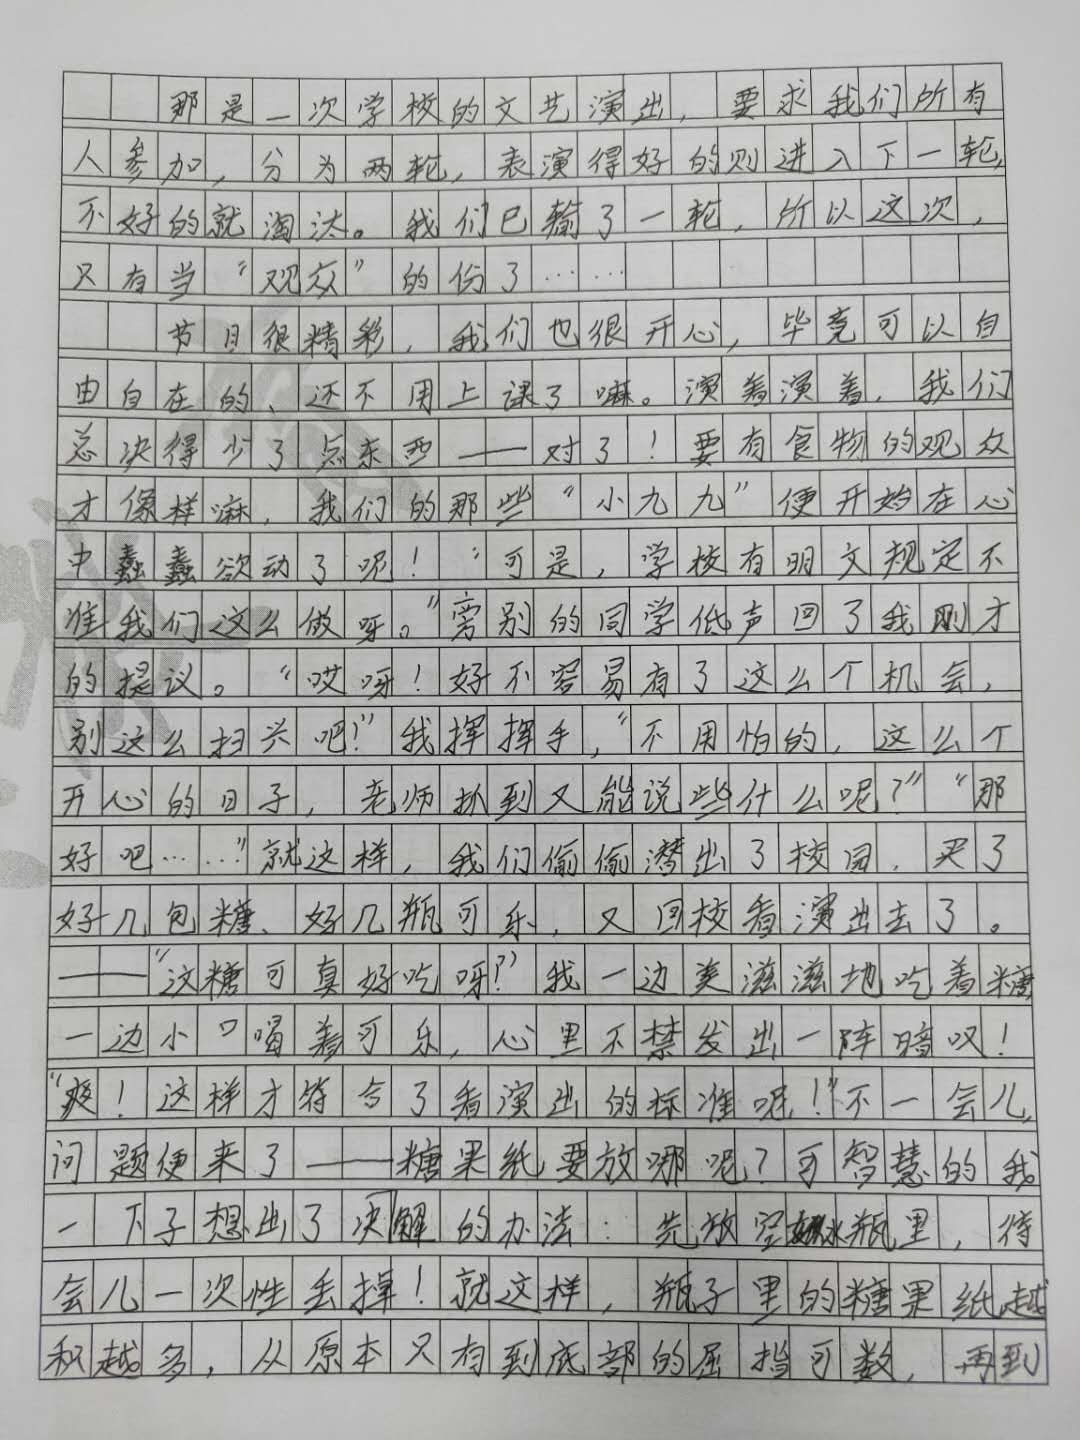 那是一次学校的文艺演出，要求我们所有
人参加，分为两轮，表演得好的则进入下一轮，
不好的就淘汰。我们已输了一轮，所以这次，
只有当“观众”的份了……
节目很精彩，我们也很开心，毕竟可以自
由自在的、还不用上课了嘛。演着演着，我们
总决得少了点东西——对了！要有食物的观众
才像样嘛，我们的那些“小九九”便开始在心
中蠢蠢欲动了呢！“可是，学校有明文规定不
准我们这么做呀。”旁别的同学低声回了我刚才
的提议。“哎呀！好不容易有了这么个机会，
别这么扫兴吧！”我挥挥手，“不用怕的，这么个
开心的日子，老师抓到又能说些什么呢？”“那
好吧……”就这样，我们偷偷潜出了校园，买了
好几包糖、好几瓶可乐，又回校看演出去了。
——“这糖可真好吃呀？”我一边美滋滋地吃着糖
一边小口喝着可乐，心里不禁发出一阵暗叹！
“爽！这样才符合了看演出的标准呢！”不一会儿，
问题便来了——糖果纸要放哪呢？可智慧的我
一下子想出了决解的办法：先放空水瓶里，待
会儿一次性丢掉！就这样，瓶子里的糖果纸越
积越多，从原本只有到底部的屈指可数，再到